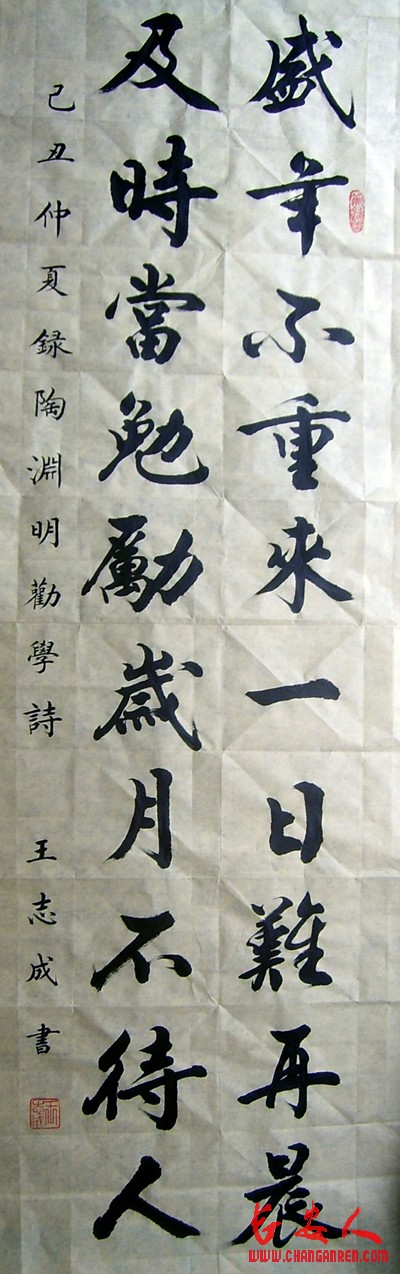 盛年不重來一日難再晨
及時當勉勵歲月不待人
己丑仲夏録陶淵明勸學詩 王志成書
长安人
WWW.CHANGANREN.COM